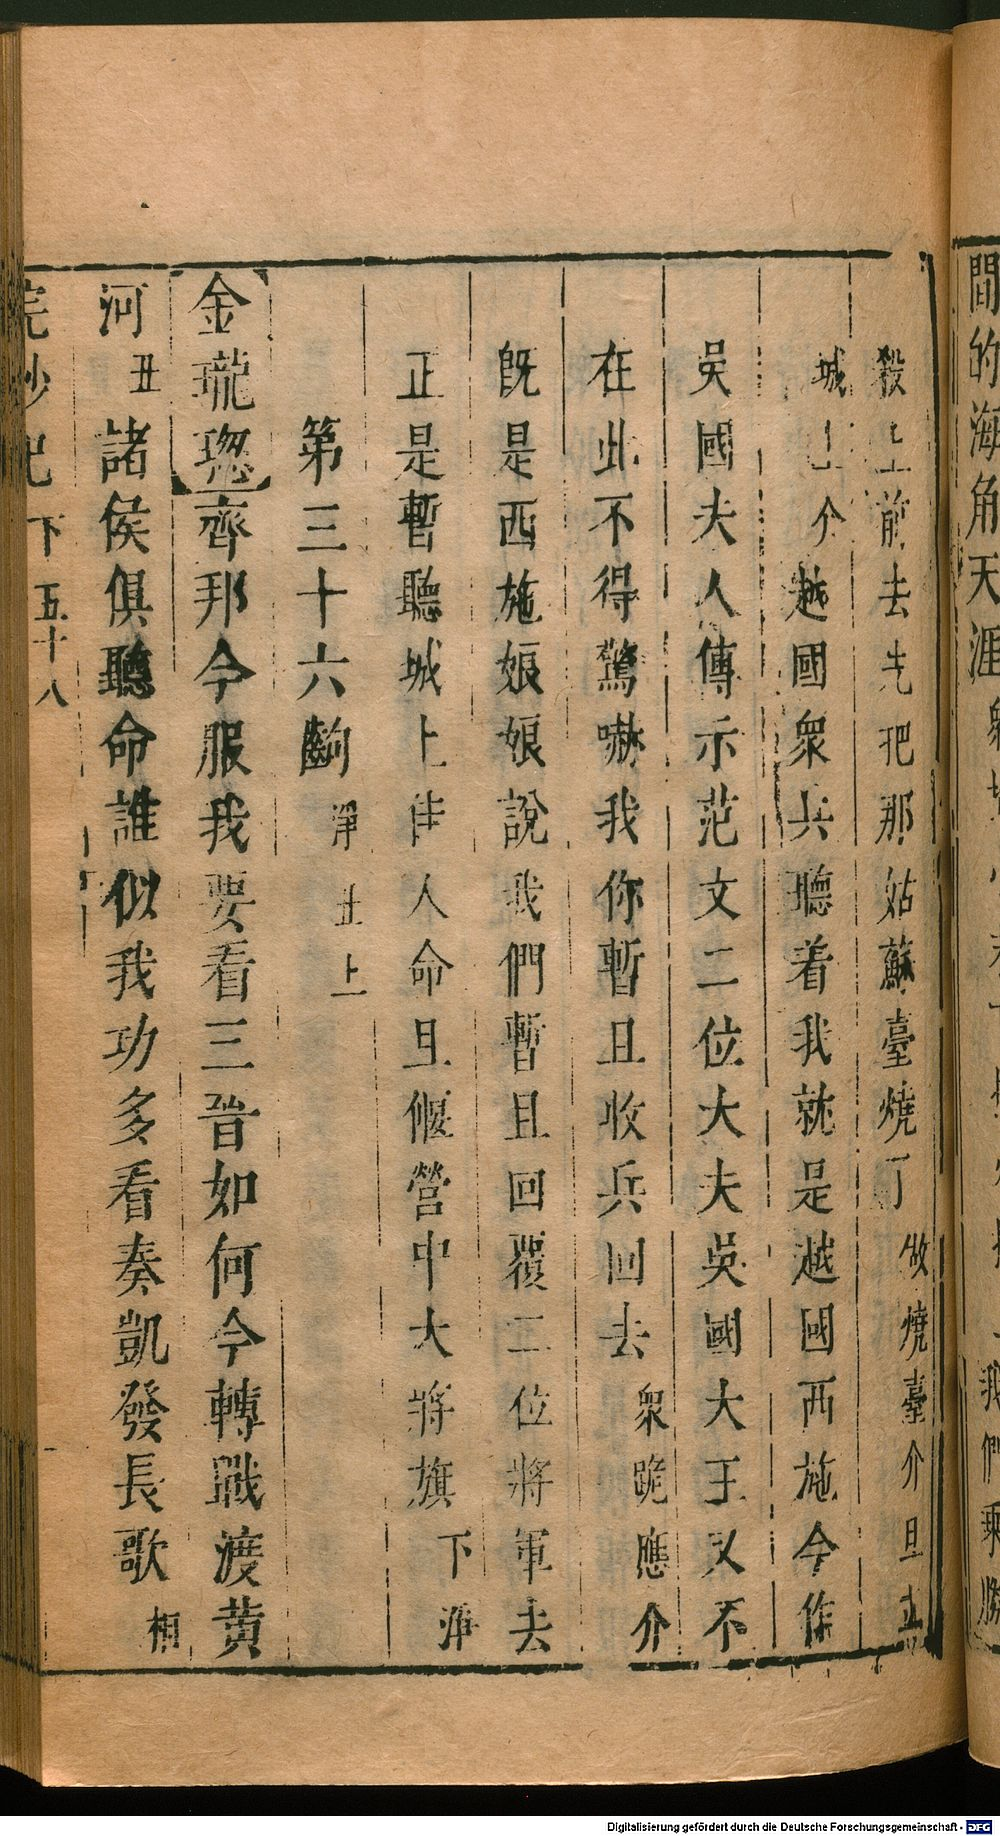 間的海角天涯
我們乘勝
殺上前去先把那姑蘇臺燒了做燒臺介旦立
城上介越國衆兵聽着我就是越國西施今作
吳國夫人傳示范文二位大夫吳國大王又不
在此不得驚嚇我你暫且收兵回去衆跪應介
旣是西施娘娘說我們暫且回覆二位將軍去
正是暫聽城上佳人命且偃營中大將旗下淨
第三十六齣淨丑上
金瓏璁齊邦今服我要看三晉如何今轉戰渡黃
河丑諸侯俱聽命誰似我功多看奏凱發長歌相
浣紗記下五十八
Digitalisierung gefördert durch die Deutsche Forschungsgemeinschaft - DFG